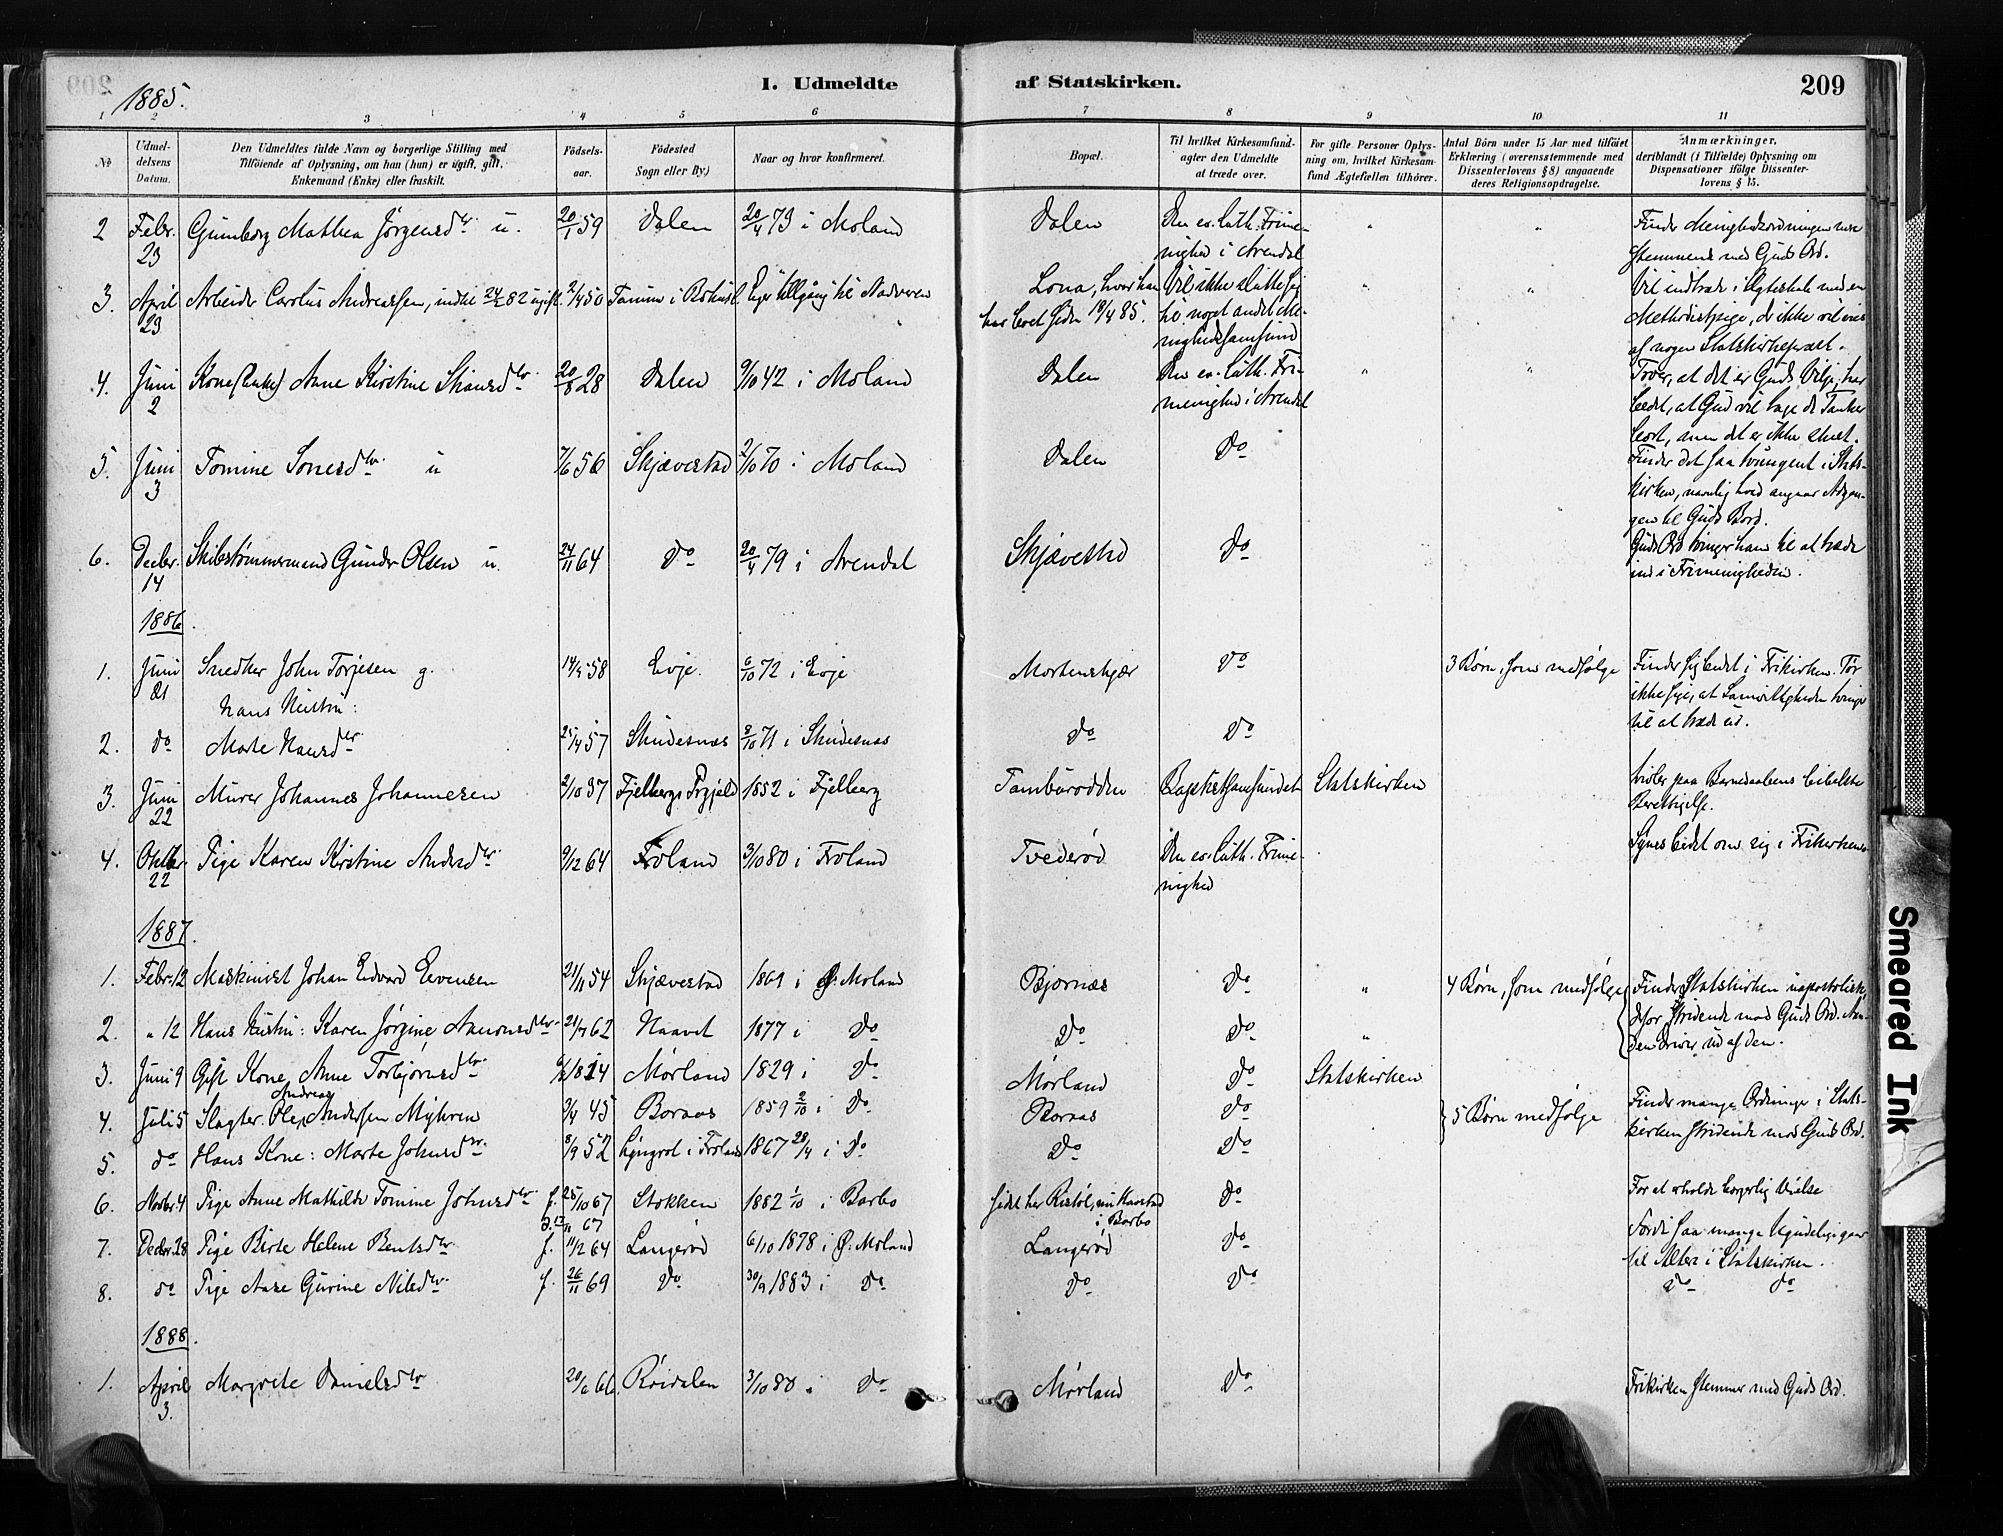 1885.
I. Udmeldte af Statskirken.
209
1 2 3 4 5 6 7 8 9 10 11
No
Udmeldelsens Datum.
Den Udmeldtes fulde Navn og borgerlige Stilling med Tilföiende af Oplysning, om han (hun) er ugift, gift, Enkemand (Enke) eller fraskilt.
Födselsaar.
Födested Sogn eller By.)
Naar og hvor konfirmeret.
Bopæl.
Til hvilket Kirkesamfund agter den Udmeldte at træde over.
For gifte Personer Oplysning om, hvilket Kirkesamfund Ægtefællen tilhörer.
Antal Börn under 15 Aar med tilföiet Erklæring (overensstemmende med Dissenterlovens § 8) angaaende deres Religionsopdragelse.
Anmærkninger, deriblandt (i Tilfælde) Oplysning om Dispensationer ifölge Dissenterlovens § 15.
2 Febr. 23 Gunborg Mathea Jørgensdtr. u. 20/1 59 Dalen 20/4 73 i Moland Dalen Den ev. luth. Frimenighed i Arendal " " Finder Menighedsordningen mere stemmende med Guds Ord.
3. April 23 Arbeider Carolus Andreassen, indtil 24/2 82 ugift 2/4 50 Tanum i Bohusl. Eier tillgång til Nadveren Lona, hvor han har boet siden 10/4 85. Vil ikke slutte sig til noget andet Menighedssamfund " " Vil indtræde i Ægteskab med en Methodistpige, der ikke vil vies af nogen Statskirkepræst.
4. Juni 2 Kone (Enke) Anne Kirstine Stiansdtr. 20/8 28 Dalen 9/10 42 i Moland Dalen Den ev. luth. Frimenighed i Arendal " " Troer, at det er Guds Vilje; har bedet, at Gud vil tage de Tanker bort, men det er ikke skeet.
5. Juni 3 Tomine Sonesdtr. u 7/6 56 Skjævestad 2/10 70 i Moland Dalen Do Finder det saa tvungent i Statskirken, navnlig hvad angaar Adgangen til Guds Bord.
6. Decbr. 14 Skibstømmermand Gunder Olsen u. 24/11 64 Do 20/4 79 i Arendal Skjævestad Do Guds Ord tvinger ham til at træde ind i Frimenigheden.
1886.
1. Juni 21 Snedker John Torjesen g. 14/5 58 Evje. 6/10 72 i Evje Mortenskjær Do 3 Børn, som medfølge Finder sig bedst i Frikirken. Tør ikke sige, at Samvittigheden tvinger til at træde ud.
Hans Hustru:
2. do Marte Hansdtr 25/4 57 Skudesnæs 2/10 71 i Skudesnæs do Do
3. Juni 22 Murer Johannes Johannesen 2/10 37 Fjelberg Prgjeld 1852 i Fjelberg Tamburodden Baptistsamfundet Statskirken tvivler paa Barnedaabens bibelske Berettigelse.
4. Oktbr 22 Pige Karen Kirstine Andersdtr. 9/12 64 Froland 3/10 80 i Froland Tvederød Den ev. luth. Frimenighed Synes bedst om sig i Frikirken
1887.
1. Febr. 12 Maskinist Johan Edvard Evensen 21/11 54 Skjævestad 1869 i Ø. Moland Bjornæs Do " 4 Børn, som medfølge Finder Statskirken uapostolisk, derfor stridende mod Guds Ord. Aanden driver ud af den.
2. " 12 Hans Hustru: Karen Jørgine Aanonsdtr. 21/7 62 Naavet 1877 i Do Do Do "
3. Juni 9 Gift Kone Anne Torbjørnsdtr. 6/8 1814 Mørland 1829 i Do Mørland Do Statskirken
4. Juli 5 Slagter Ole Andreas Andersen Myhren 3/4 45 Boraas 1859 2/10 i Do Boraas Do 5 Børn medfølge Finder mange Ordninger i Statskirken stridende mod Guds Ord.
5. do Hans Kone: Marte Johnsdtr. 8/9 52 Lyngrot i Froland 1867 28/4 i Do Do Do
6. Novbr. 4 Pige Anne Mathilde Tomine Johnsdtr f. 25/10 67 Stokken 1882 1/10 i Barbo sidst her Ristøl, nu Haastad i Barbo Do For at erholde borgerlig Vielse
7. Decbr. 28 Pige Birte Helene Bentsdtr. f. 11/12 64 Langerød 6/10 1878 i Ø. Moland Langerød Do Fordi saa mange Ugudelige gaar til Alters i Statskirken.
8. do Pige Aase Gurine Nilsdtr. f. 26/11 69 Do 30/9 1883 i Do Do Do Do do
1888.
1. April 3. Margrete Danielsdtr 20/6 66 Røidalen 3/10 80 i Do Mørland Do Frikirken stemmer med Guds Ord.
Smeared Ink